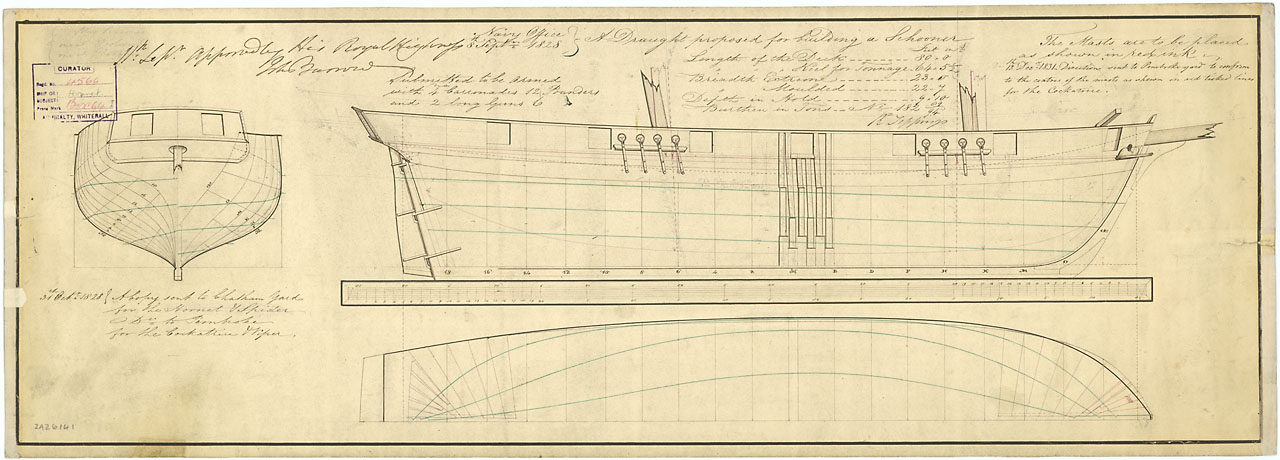 11th Septr. approved by His Royal Highness
John Barrow
Navy Office
8 Septr. 1828
A Draught proposed for building a Schooner
Length of the Deck 80.0
Keel for Tonnage 64.5
Breadth Extreme 23.0
Moulded 22.7
Depth in Hold
Burthen in Tons No. 182
Rt. Seppings
Submitted to be armed
with 4 Carronades 12 Pounders
and 2 long Guns 6
The Masts are to be placed
as shown in red ink
13 Dec. 1831. Directions sent to Pembroke yard to conform
to the centres of the masts as shown in red ticked lines
for the Cockatrice.
CURATOR
Regd. No. 4566
SHIP OR SUBJECT Hornet
Press Mark Box 64
ADMIRALTY, WHITEHALL
31st Octr. 1828 A Copy sent to Chatham Yard
for the Hornet & Spider
& Do. to Pembroke
for the Cockatrice & Viper.
ZAZ6141